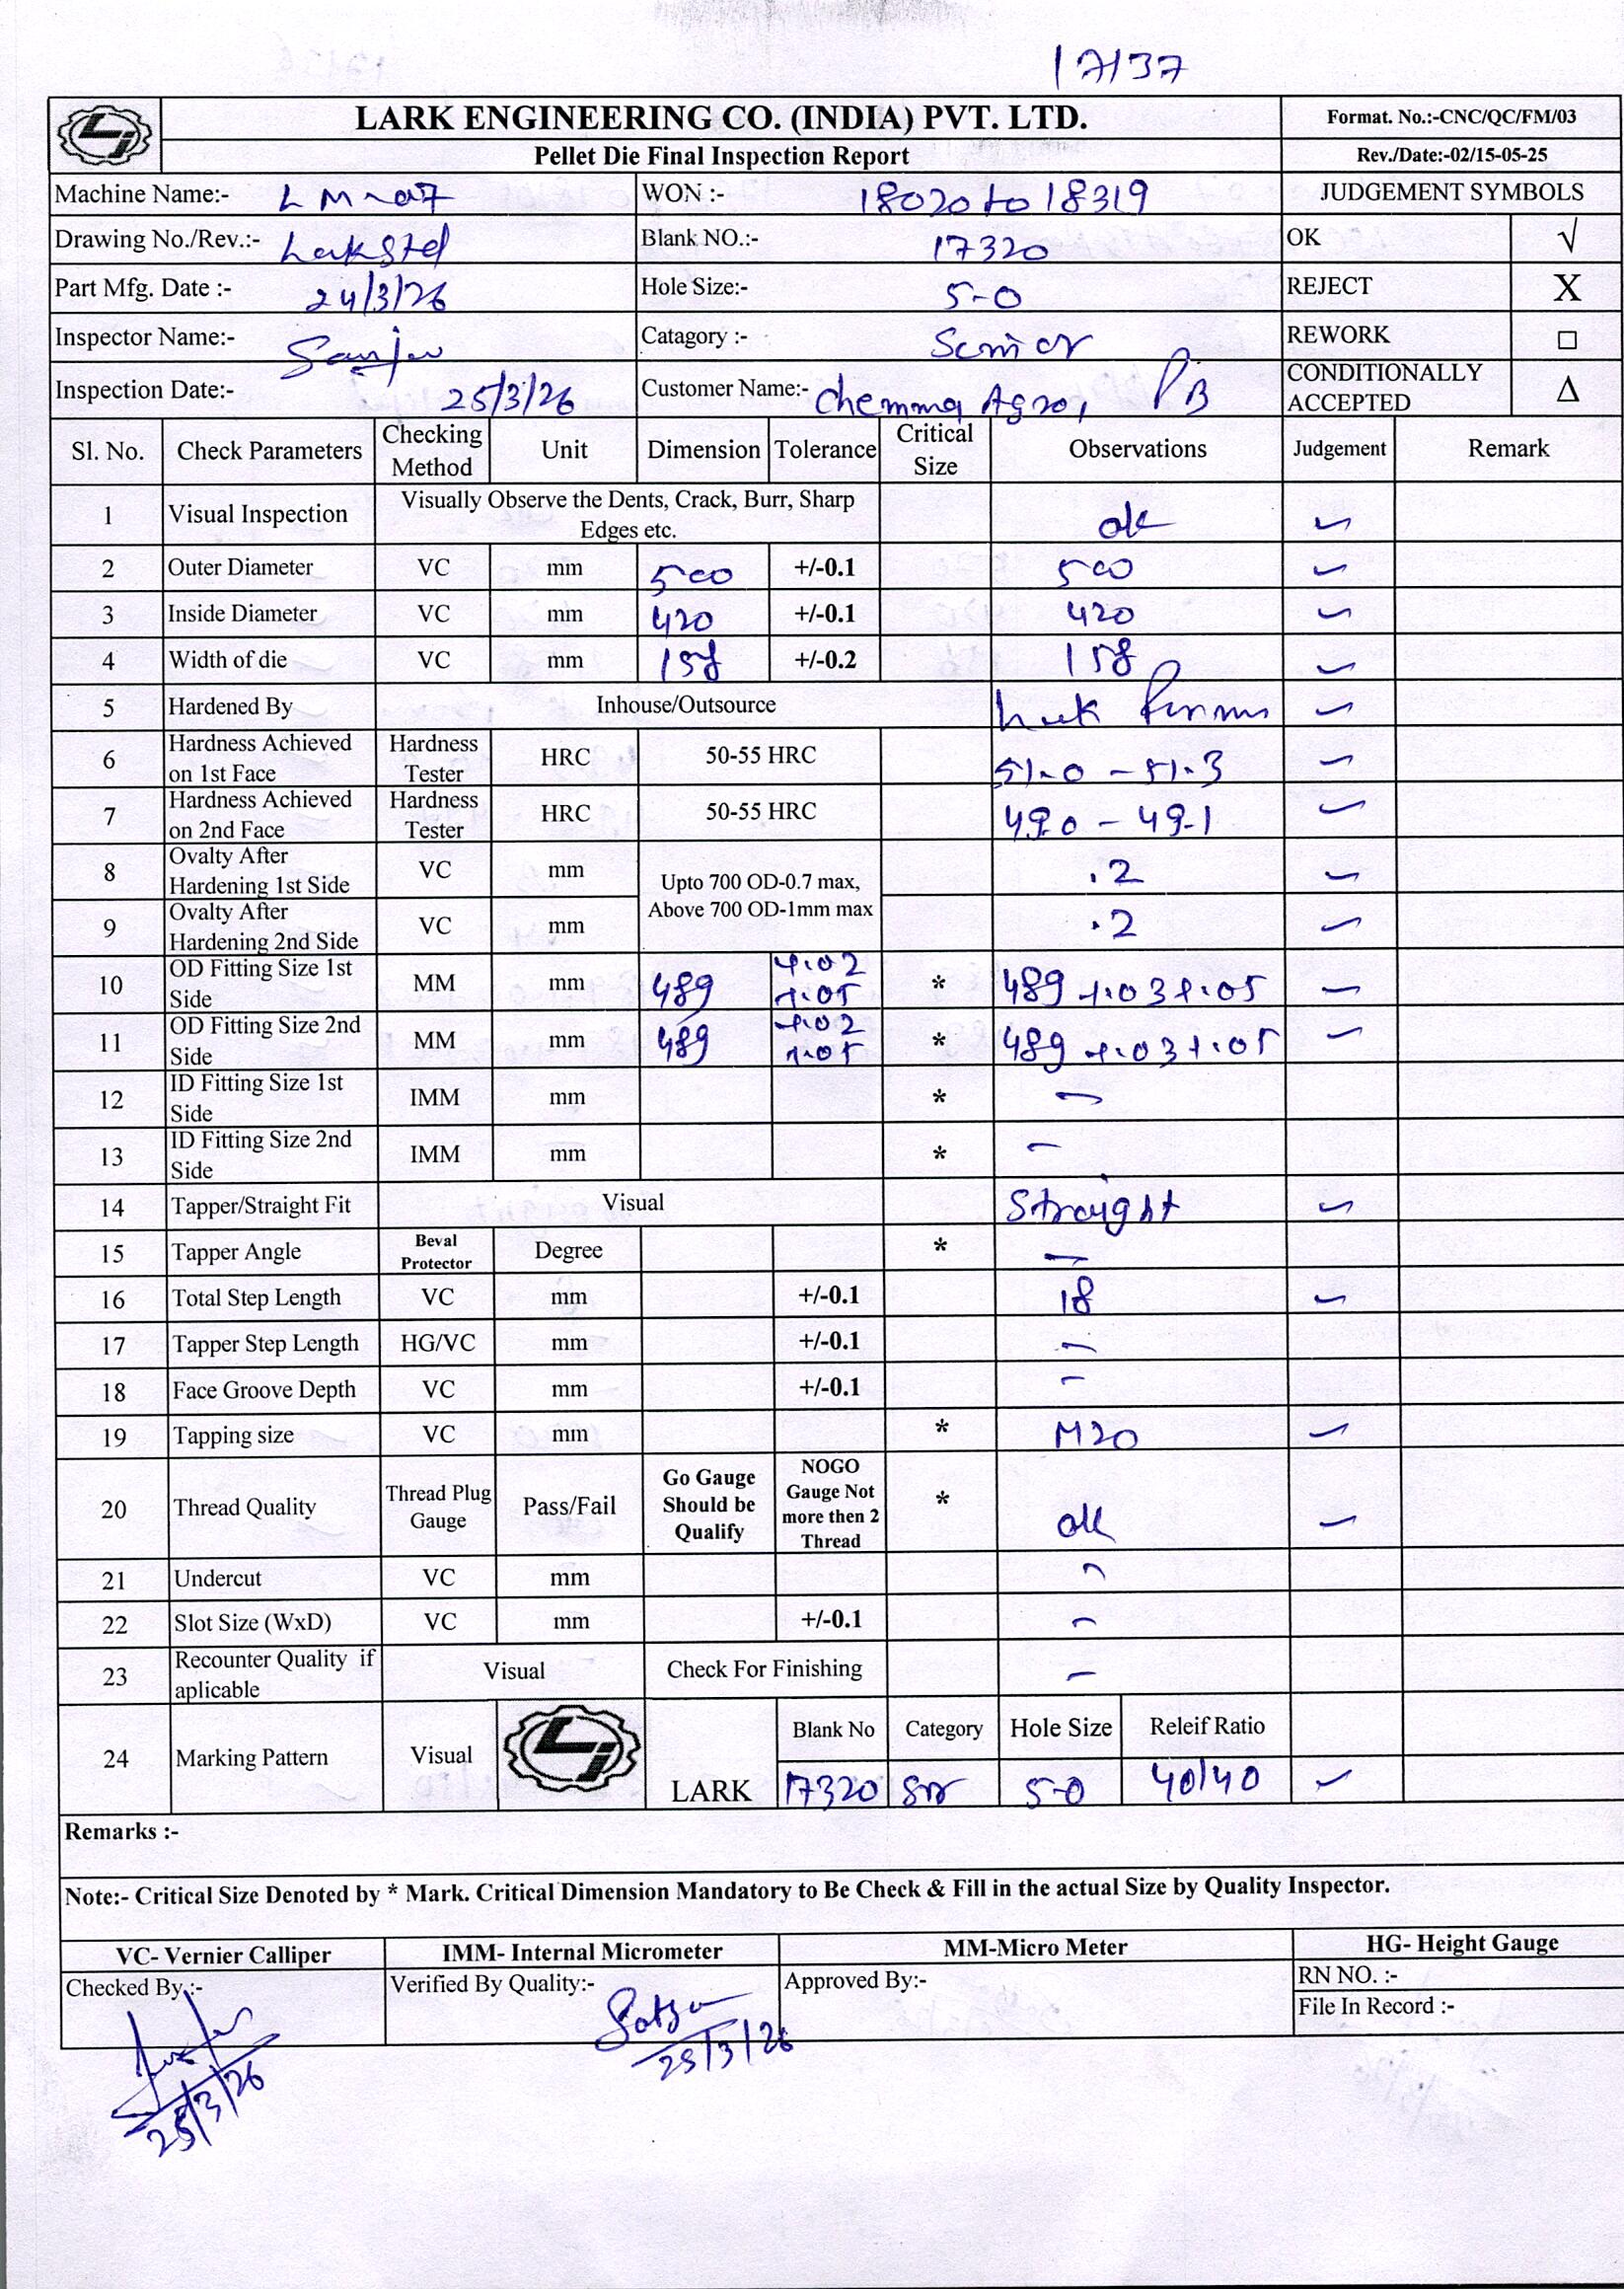 17137
LARK ENGINEERING CO. (INDIA) PVT. LTD.
Format. No.:-CNC/QC/FM/03
Pellet Die Final Inspection Report
Rev./Date:-02/15-05-25
Machine Name:- LM-07 WON :- 18020 to 18319 JUDGEMENT SYMBOLS
Drawing No./Rev.:- Blank NO.:- 17320 OK √
Part Mfg. Date :- 24/3/26 Hole Size:- 5-0 REJECT X
Inspector Name:- Catagory :- Senior REWORK □
Inspection Date:- 25/3/26 Customer Name:- Chemma Agro, PB CONDITIONALLY ACCEPTED Δ
Sl. No. Check Parameters Checking Method Unit Dimension Tolerance Critical Size Observations Judgement Remark
1 Visual Inspection Visually Observe the Dents, Crack, Burr, Sharp Edges etc. ok ✓
2 Outer Diameter VC mm 500 +/-0.1 500 ✓
3 Inside Diameter VC mm 420 +/-0.1 420 ✓
4 Width of die VC mm 158 +/-0.2 158 ✓
5 Hardened By Inhouse/Outsource ✓
6 Hardness Achieved on 1st Face Hardness Tester HRC 50-55 HRC 51.0 - 51.3 ✓
7 Hardness Achieved on 2nd Face Hardness Tester HRC 50-55 HRC 49.0 - 49.1 ✓
8 Ovalty After Hardening 1st Side VC mm Upto 700 OD-0.7 max, Above 700 OD-1mm max .2 ✓
9 Ovalty After Hardening 2nd Side VC mm .2 ✓
10 OD Fitting Size 1st Side MM mm 489 +.02 +.05 * 489 +.03 +.05 ✓
11 OD Fitting Size 2nd Side MM mm 489 +.02 +.05 * 489 +.03 +.05 ✓
12 ID Fitting Size 1st Side IMM mm * -
13 ID Fitting Size 2nd Side IMM mm * -
14 Tapper/Straight Fit Visual Straight ✓
15 Tapper Angle Beval Protector Degree * -
16 Total Step Length VC mm +/-0.1 18 ✓
17 Tapper Step Length HG/VC mm +/-0.1 -
18 Face Groove Depth VC mm +/-0.1 -
19 Tapping size VC mm * M20 ✓
20 Thread Quality Thread Plug Gauge Pass/Fail Go Gauge Should be Qualify NOGO Gauge Not more then 2 Thread * ok ✓
21 Undercut VC mm -
22 Slot Size (WxD) VC mm +/-0.1 -
23 Recounter Quality if aplicable Visual Check For Finishing -
24 Marking Pattern Visual LARK Blank No Category Hole Size Releif Ratio
17320 Sr 5-0 40/40 ✓
Remarks :-
Note:- Critical Size Denoted by * Mark. Critical Dimension Mandatory to Be Check & Fill in the actual Size by Quality Inspector.
VC- Vernier Calliper IMM- Internal Micrometer MM-Micro Meter HG- Height Gauge
Checked By:- Verified By Quality:- Approved By:- RN NO. :-
File In Record :-
25/3/26
25/3/26